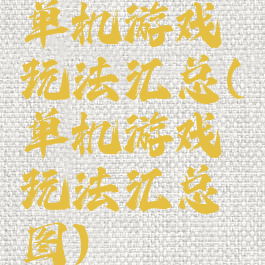 单机游戏
玩法汇总(
单机游戏
玩法汇总
图)